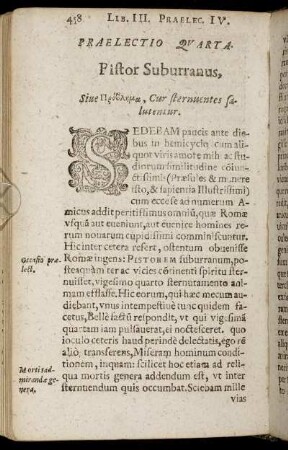 458 LIB. III. PRAELEC. IV.
PRAELECTIO QVARTA.
Pistor Suburranus,
Siue Πρόβλημα, Cur sternuentes sa-
lutentur.
SEDEBAM paucis ante die-
bus in hemicyclo cum ali-
quot viris amore mihi ac stu-
diorum similitudine coniun-
ctissimis (Praeses & munere
isto, & sapientia Illustrissimi)
cum eccese ad numerum A-
micus addit peritissimus omniū, quae Romae
vsquā aut eueniunt, aut euenire homines re-
rum nouarum cupidissimi comminiscuntur.
Hic inter cetera refert, ostentum obuenisse
Romae ingens: PISTOREM suburranum, po-
steaquàm ter ac vicies cōtinenti spiritu ster-
nuisset, vigesimo quarto sternutamento ani-
mam efflasse. Hic eorum, qui haec mecum au-
diebant, vnus intempestiuè tunc quidem fa-
cetus, Bellè factū respondit, vt qui vigesimā
quartam iam pulsauerat, ei noctesceret. quo
ioculo ceteris haud perinde delectatis, ego rē
aliò transferens, Miseram hominum condi-
tionem, inquam: scilicet hoc etiam ad re-
liqua mortis genera addendum est, vt inter
sternuendum quis occumbat. Sciebam mille
vias
Occasio prae-
lect.
Mortis ad-
miranda ge-
nera,